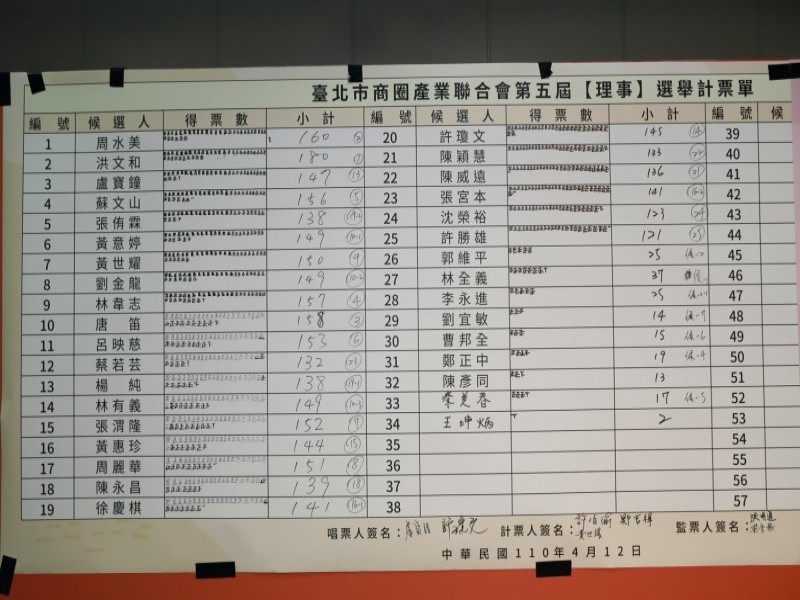 臺北市商圈產業聯合會第五屆【理事】選舉計票單
編號 候選人 得票數 小計 編號 候選人 得票數 小計 編號 候
1 周水美 160 20 許瓊文 145 39
2 洪文和 180 ① 21 陳穎慧 133 40
3 盧寶鐘 147 ⑬ 22 陳威遠 136 41
4 蘇文山 156 ⑤ 23 張宮本 141 42
5 張侑霖 138 24 沈榮裕 123 43
6 黃意婷 149 25 許勝雄 121 44
7 黃世耀 150 ⑨ 26 郭維平 25 45
8 劉金龍 149 27 林全義 37 46
9 林韋志 157 ④ 28 李永進 25 47
10 唐笛 158 ③ 29 劉宜敏 14 48
11 呂映慈 153 ⑥ 30 曹邦全 15 49
12 蔡若芸 132 31 鄭正中 19 50
13 楊純 138 32 陳彥同 13 51
14 林有義 149 33 17 52
15 張渭隆 152 ⑦ 34 王坤炳 2 53
16 黃惠珍 144 ⑮ 35 54
17 周麗華 151 ⑧ 36 55
18 陳永昌 139 ⑱ 37 56
19 徐慶棋 141 38 57
唱票人簽名： 計票人簽名： 監票人簽名：
中華民國110年4月12日